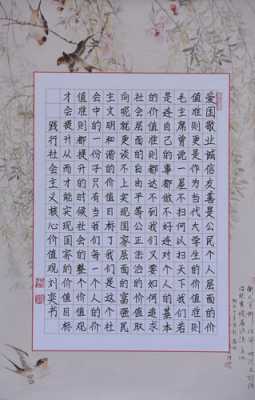 爱国敬业诚信友善是公民个人层面的价
值准则更是作为当代大学生的价值准则
毛主席曾说一屋不扫何以扫天下我们若
是连自己的事都做不好连对个人的基本
的价值准则都达不到我们又要如何追求
社会层面的自由平等公正法治的价值取
向呢就更谈不上实现国家层面的富强民
主文明和谐的价值目标了我们是这个社
会中的一份子只有当我们每一个人的价
值准则都提升的时候社会的整个价值观
才会提升从而才能实现国家的价值目标
践行社会主义核心价值观刘奕书